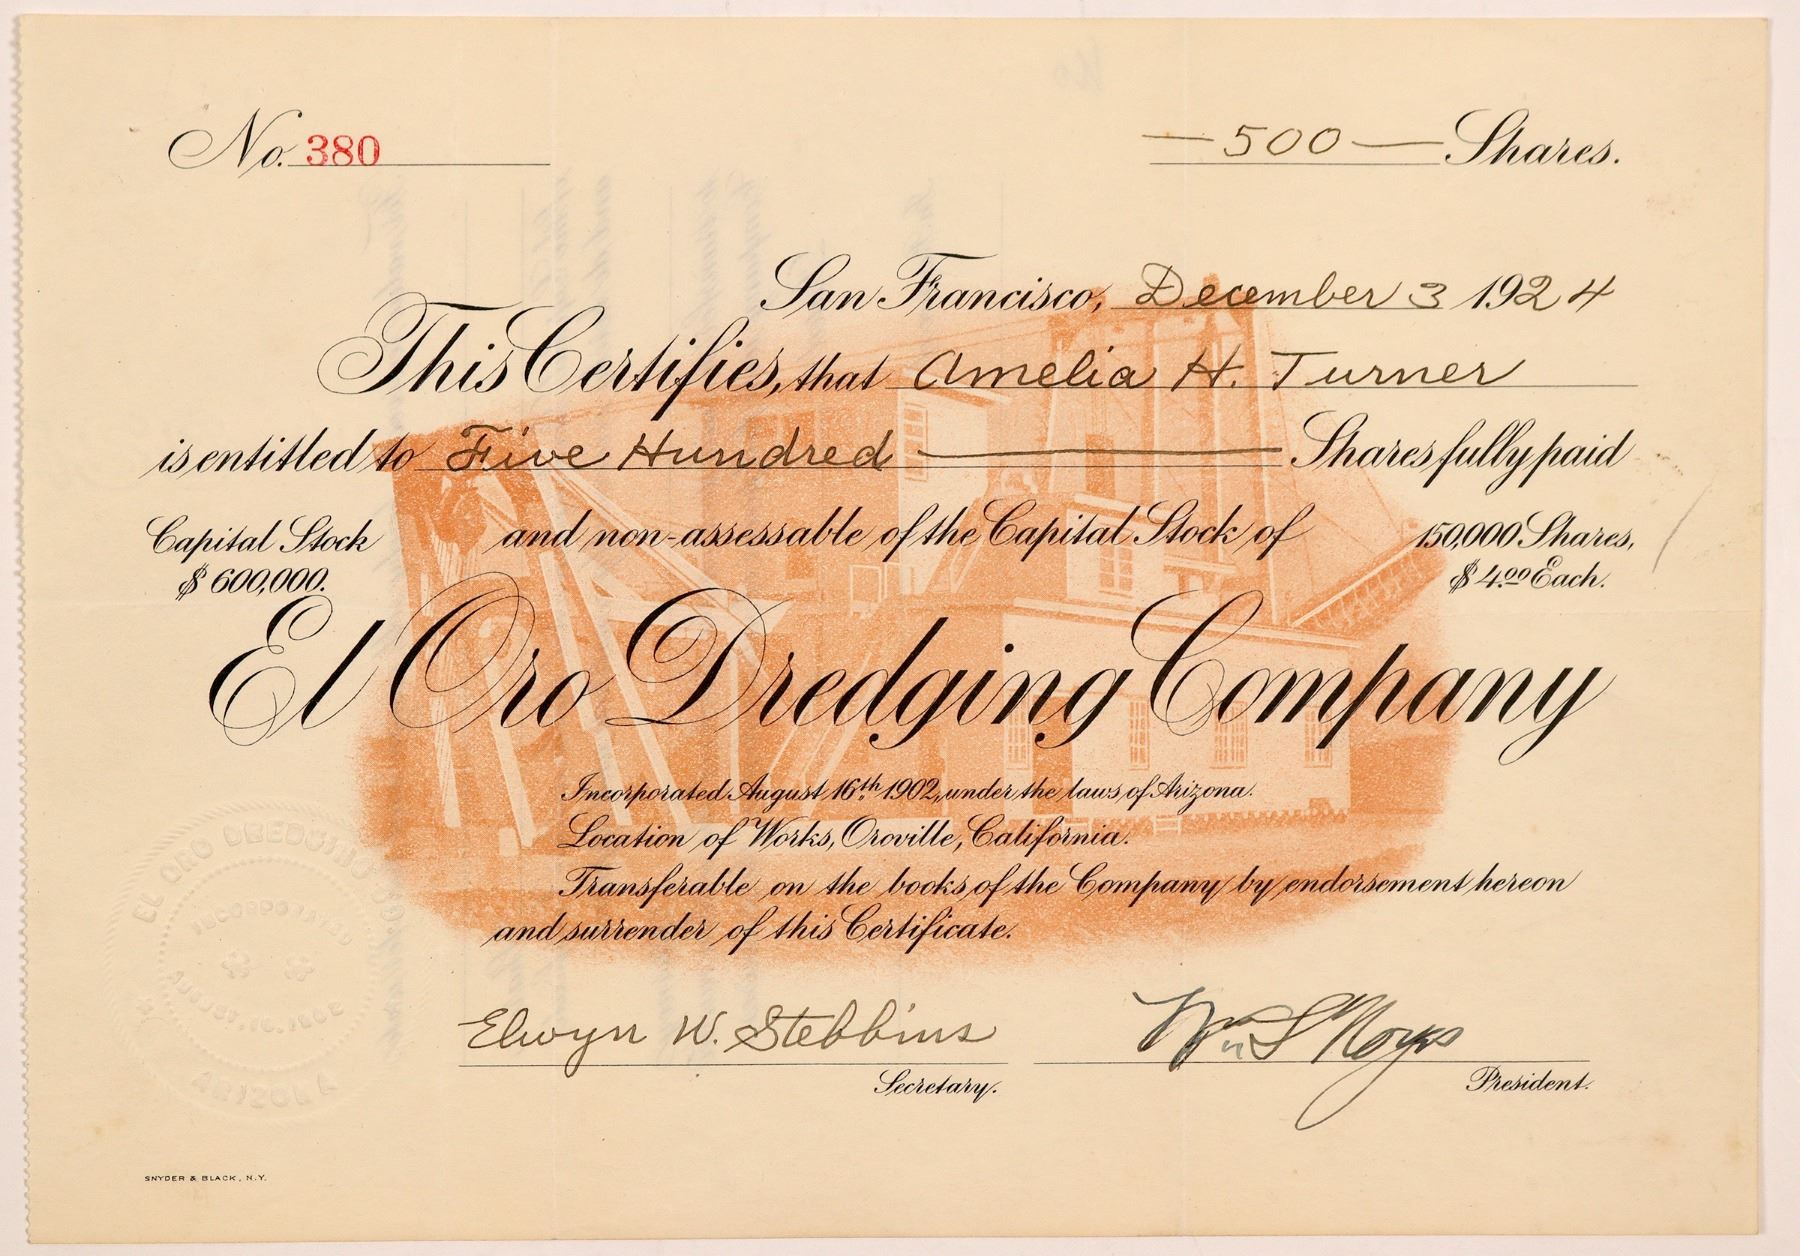 No. 380
— 500 — Shares.
San Francisco, December 3 1924
This Certifies, that Amelia H. Turner
is entitled to Five Hundred Shares fully paid
Capital Stock $600,000.
and non-assessable of the Capital Stock of
150,000 Shares, $4.00 Each.
El Oro Dredging Company
Incorporated August 16th 1902, under the laws of Arizona.
Location of Works, Oroville, California.
Transferable on the books of the Company by endorsement hereon
and surrender of this Certificate.
EL ORO DREDGING CO.
INCORPORATED
AUGUST, 16, 1902
ARIZONA
Elwyn W. Stebbins
Secretary.
Wm S Noyes
President.
SNYDER & BLACK, N.Y.